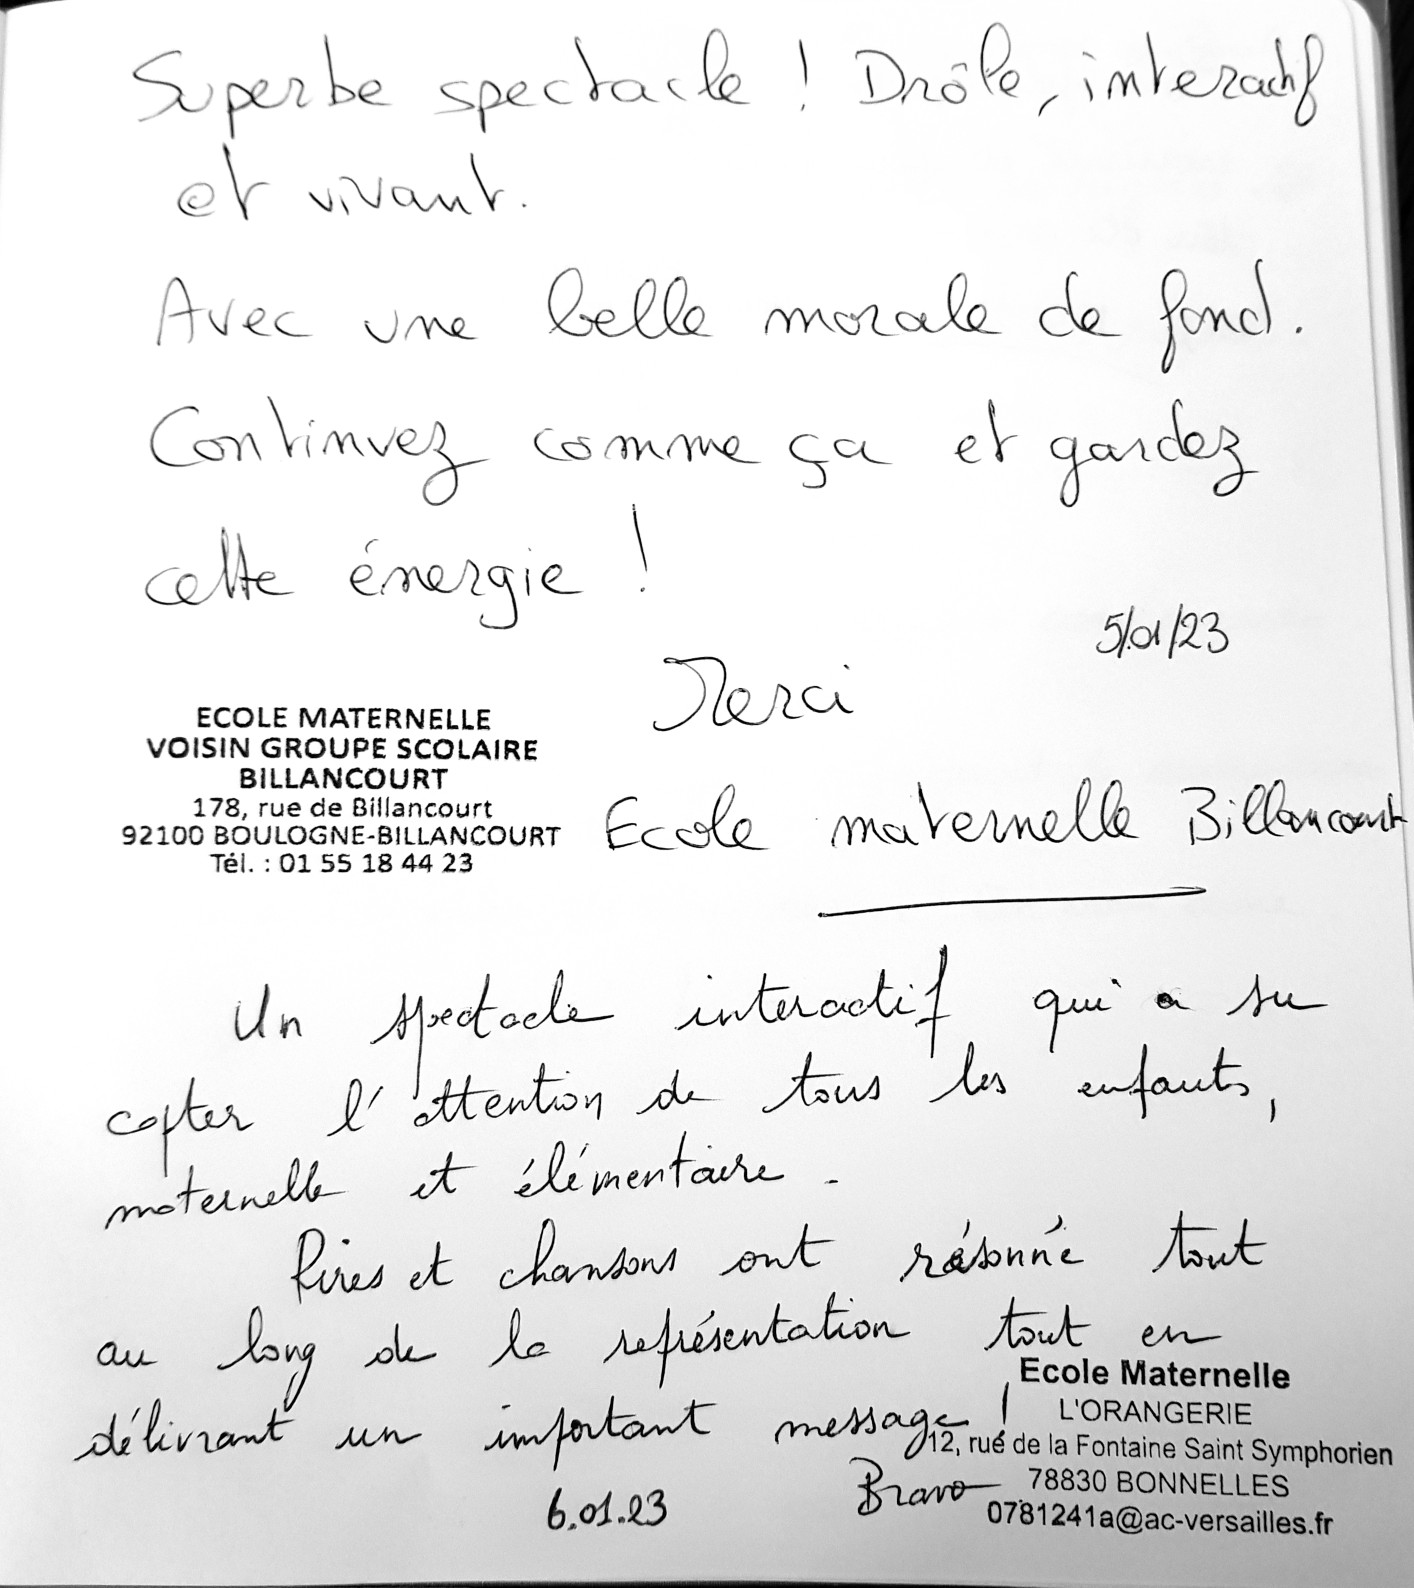 Superbe spectacle ! Drôle, interactif
et vivant.
Avec une belle morale de fond.
Continuez comme ça et gardez
cette énergie !
5/01/23
Merci
ECOLE MATERNELLE
VOISIN GROUPE SCOLAIRE
BILLANCOURT
178, rue de Billancourt
92100 BOULOGNE-BILLANCOURT
Tél. : 01 55 18 44 23
Ecole maternelle Billancourt
Un spectacle interactif qui a su
capter l'attention de tous les enfants,
maternelle et élémentaire.
Rires et chansons ont résonné tout
au long de la représentation tout en
délivrant un important message !
Bravo
6.01.23
Ecole Maternelle
L'ORANGERIE
12, rue de la Fontaine Saint Symphorien
78830 BONNELLES
0781241a@ac-versailles.fr